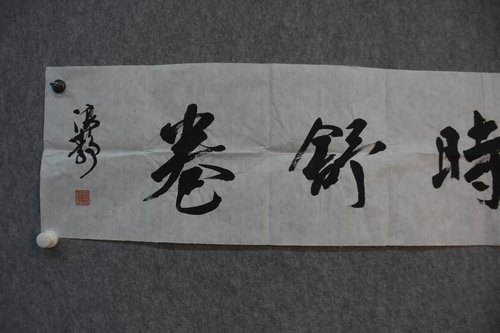 時舒卷